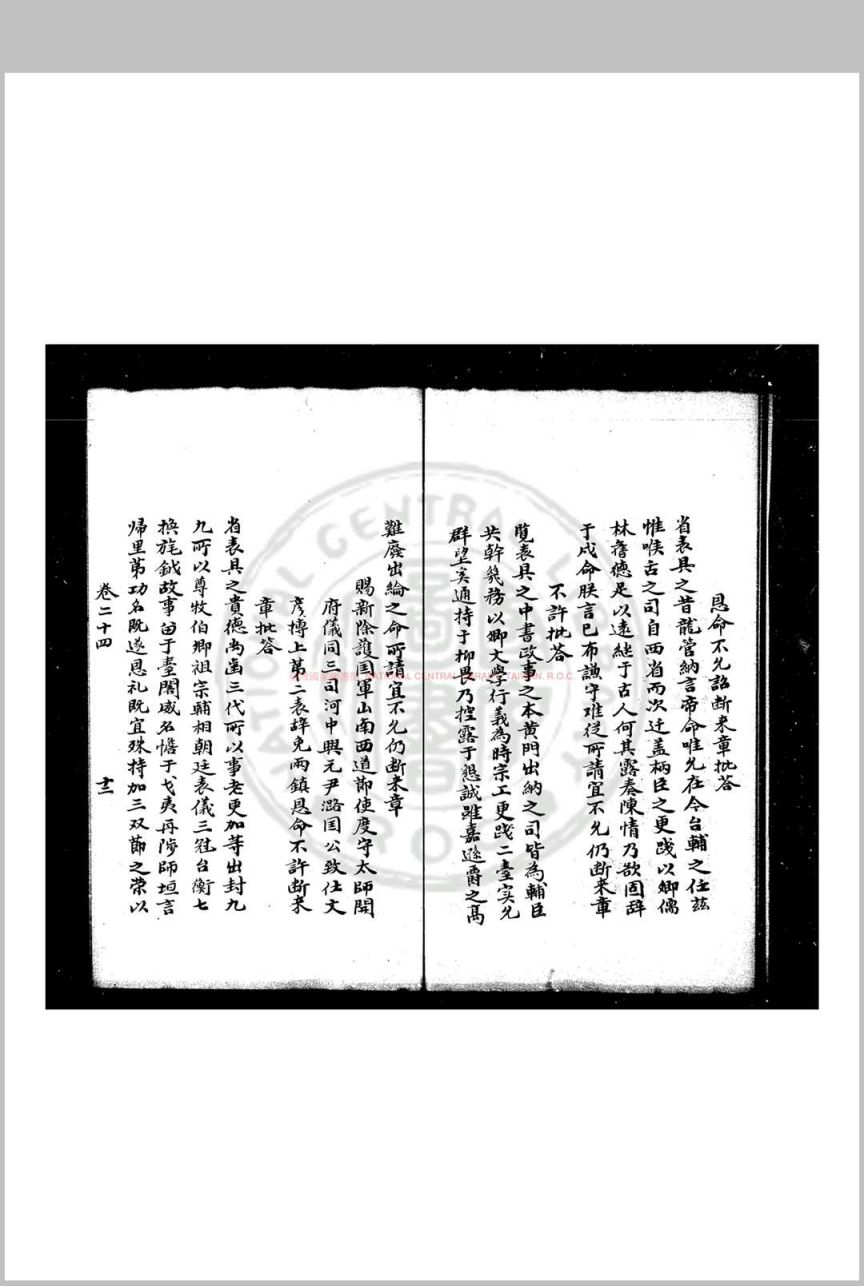 恩命不允詔断来章批荅
省表具之昔龍管納言帝命唯允在今台輔之任兹
惟喉古之司自西省而次迁盖柄臣之更践以卿儒
林耆德足以遠継于古人何其露奏陳情乃欲固辞
于成命朕言已布謙守难従所請宜不允仍断来章
不許批荅
覧表具之中書政事之本黄門出納之司皆為輔臣
共幹幾務以卿文学行義為時宗工更践二臺寔允
群望奚通持于抑畏乃控露于懇誠雖嘉遜爵之髙
難廢出綸之命所請宜不允仍断来章
賜新除護国軍山南西道莭使度守太師開
府儀同三司河中興元尹潞国公致仕文
彦博上苐二表辞免兩鎮恩命不許断来
章批荅
省表具之貴德尚齒三代所以事老更加等出封九
九所以尊牧伯卿祖宗輔相朝廷表儀三冠台衡七
换旄鉞故事畄于臺閣威名憺于戈夷再陟師垣言
帰里苐功名既遂恩礼既宜殊持加三双莭之荣以
卷二十四
十二
國家圖書館 NATIONAL CENTRAL LIBRARY, TAIWAN, R.O.C.